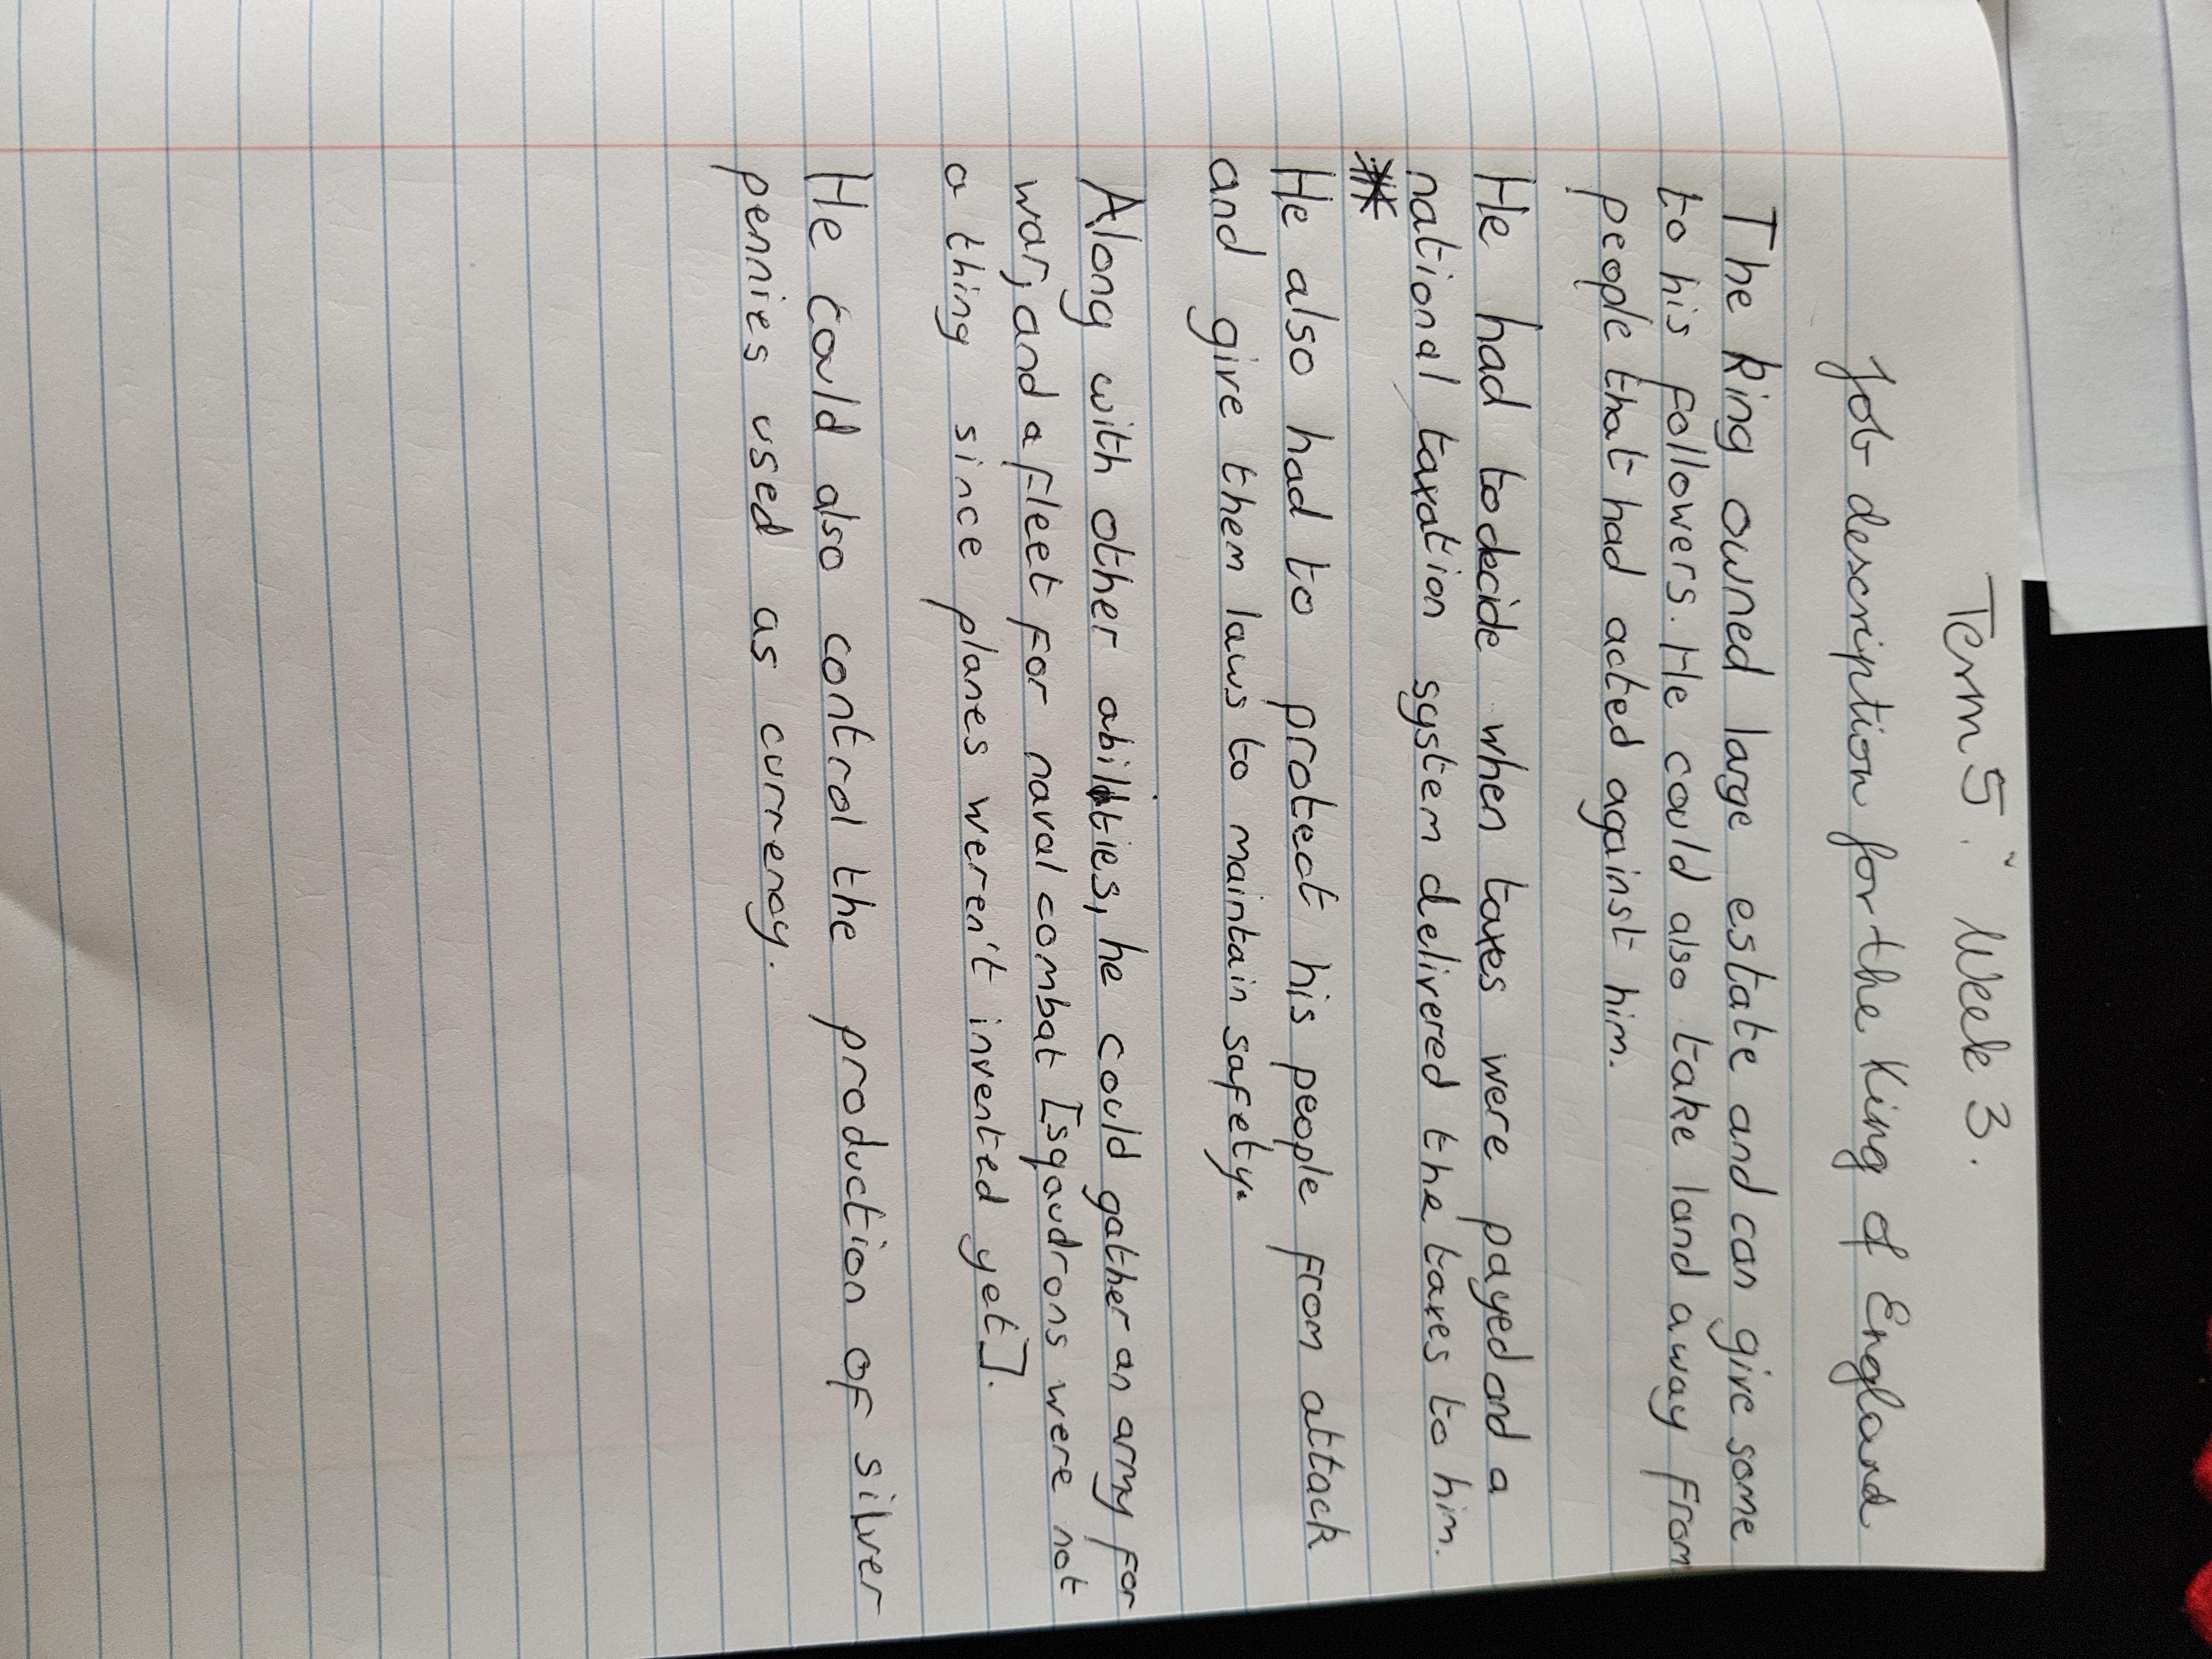 Term 5. Week 3.
Job description for the King of England
The king owned large estate and can give some
to his followers. He could also take land away from
people that had acted against him.
He had to decide when taxes were payed and a
national taxation system delivered the taxes to him.
He also had to protect his people from attack
and give them laws to maintain safety.
Along with other abilities, he could gather an army for
war, and a fleet for naval combat [sqaudrons were not
a thing since planes weren't invented yet].
He could also control the production of silver
pennies used as currency.